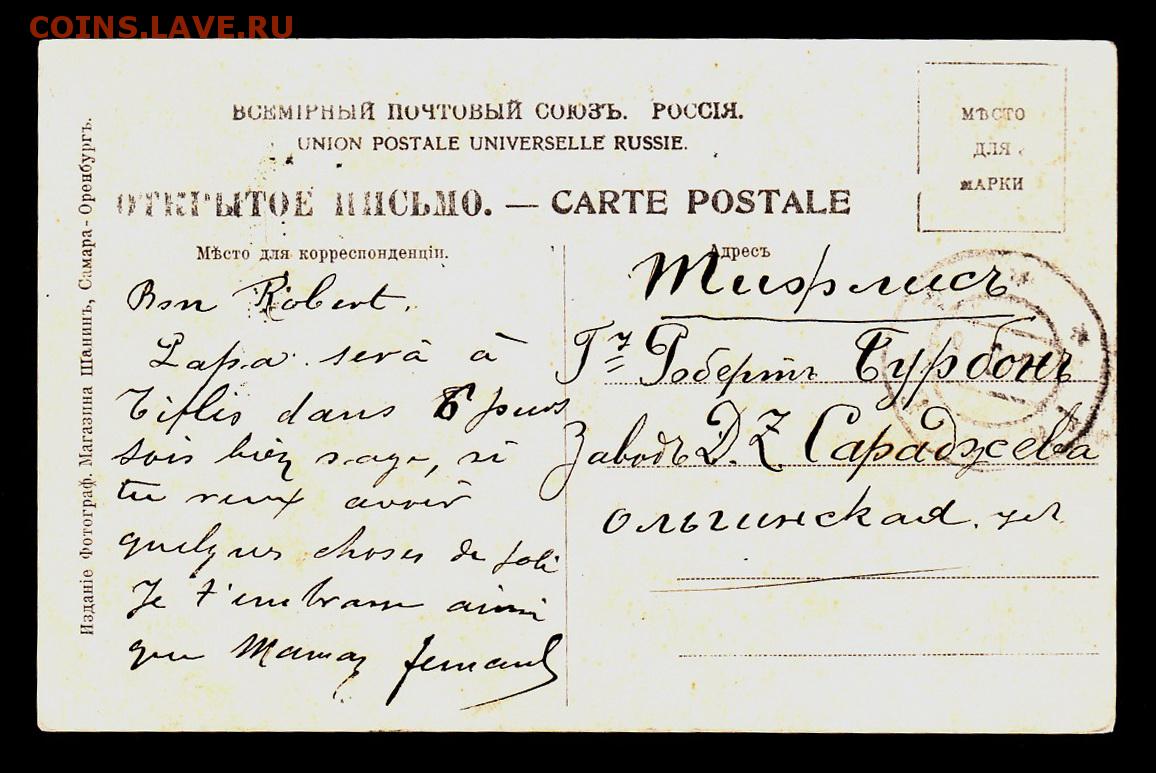 COINS.LAVE.RU
ВСЕМІРНЫЙ ПОЧТОВЫЙ СОЮЗЪ. РОССІЯ.
UNION POSTALE UNIVERSELLE RUSSIE.
ОТКРЫТОЕ ПИСЬМО. — CARTE POSTALE
МѢСТО
ДЛЯ
МАРКИ
Мѣсто для корреспонденціи.
Адресъ
Издание Фотограф. Магазина Шанинъ, Самара-Оренбургъ.
Bon Robert.
Papa sera à
Tiflis dans 6 jours
sois bien sage, si
tu veux avoir
quelques choses de joli
Je t'embrasse ainsi
que Maman Fernand
Тифлисъ
Гну Робертъ Бурбонъ
Заводъ D. Z. Сараджева
Ольгинская ул